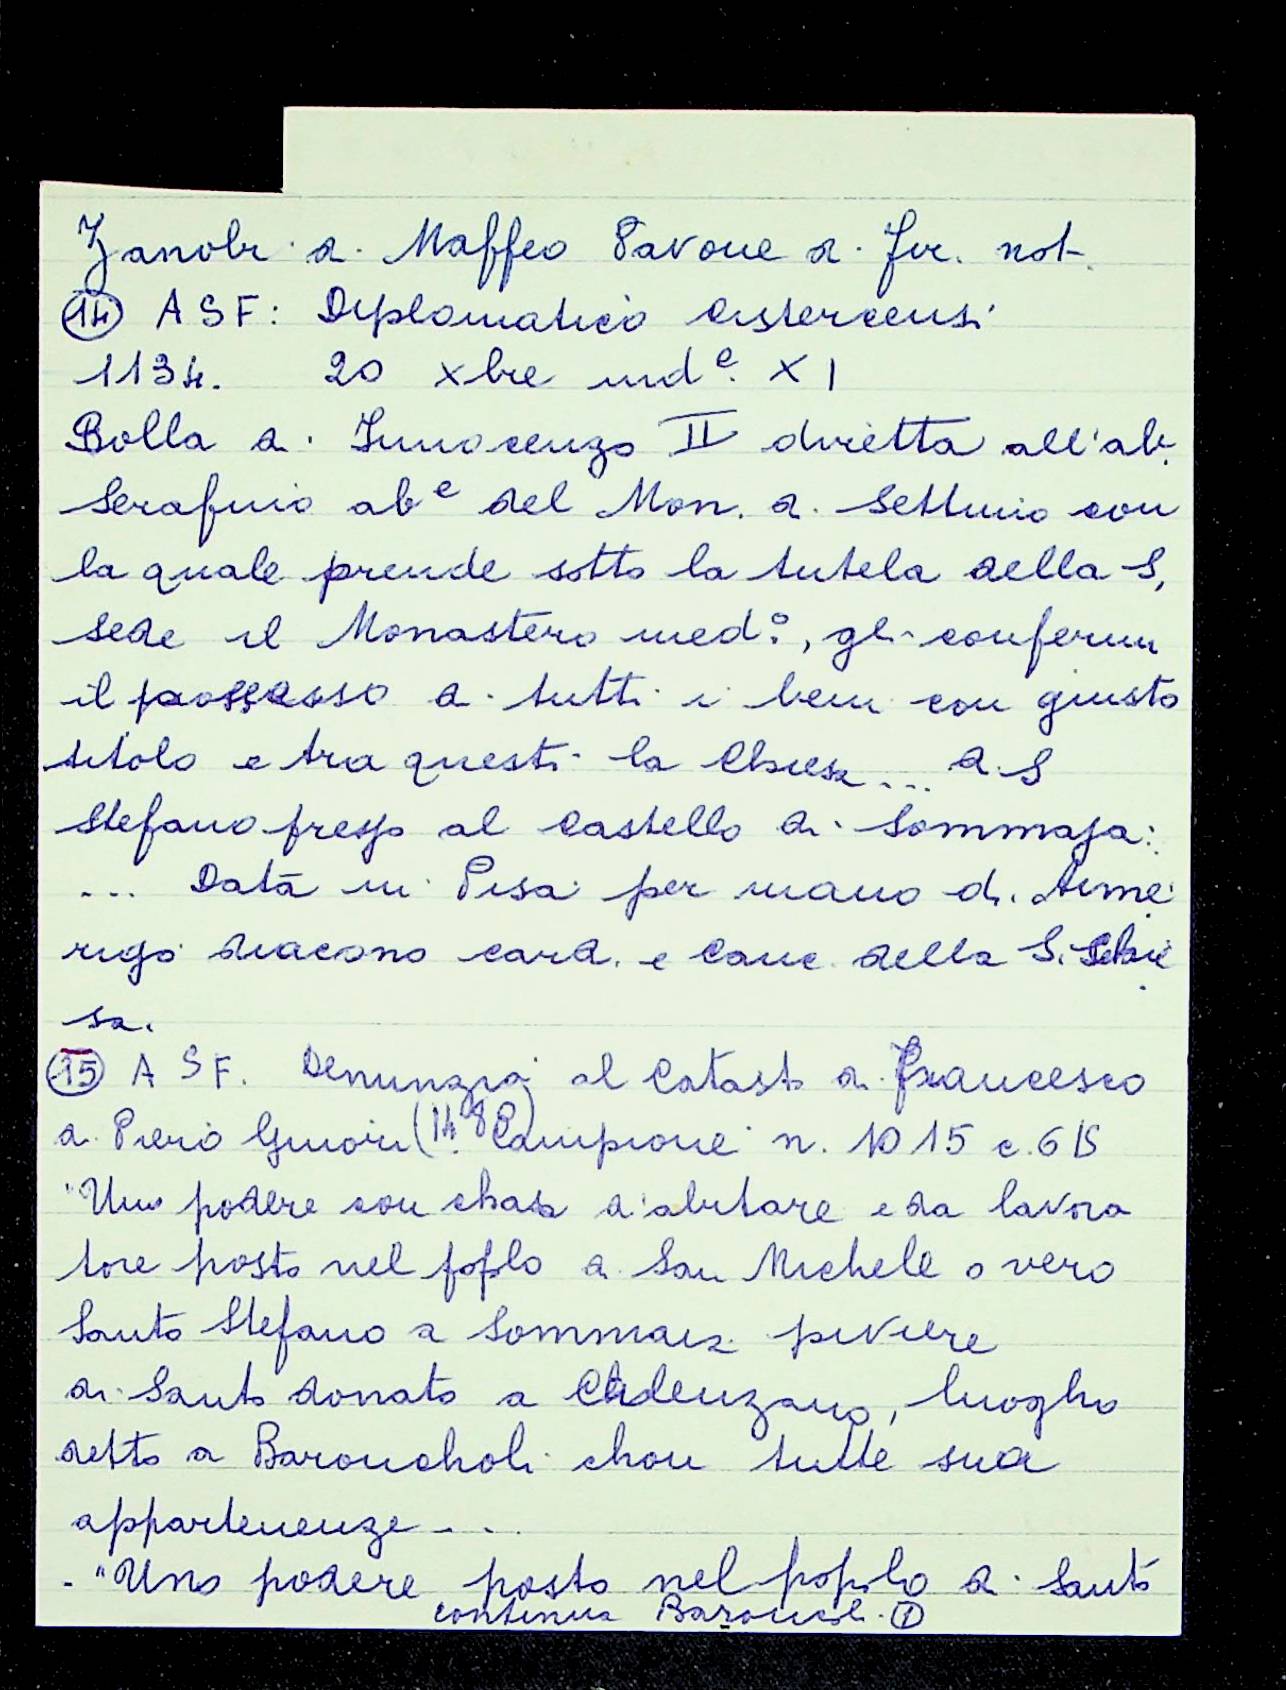 Zanobi di Maffeo Pavone di Fir. not.
(14) ASF: Diplomatico Cistercensi
1134. 20 xbre indᵉ. XI
Bolla di Innocenzo II diretta all'ab.
Serafino abᵉ del Mon. di Settimo con
la quale prende sotto la tutela della S.
Sede il Monastero medº, gli conferm
il possesso di tutti i beni con giusto
titolo e tra questi la Chiesa ... di S
Stefano presso al Castello di Sommaja:
... Datā in Pisa per mano di Aime
rigo diacono card. e canc. della S. Chie
sa.
(15) ASF. Denunzia al Catasto di Francesco
di Piero Ginori ( Campione n. 1015 c.
"Uno podere con chasa d'abitare e da lavora
tore posto nel poplo di San Michele o vero
Santo Stefano a Sommaia piviere
di Santo donato a Chalenzano, luogho
detto a Baronchholi chon tutte sua
appartenenze ...
- "Uno podere posto nel popolo di Santo
continua Baroncoli (1)